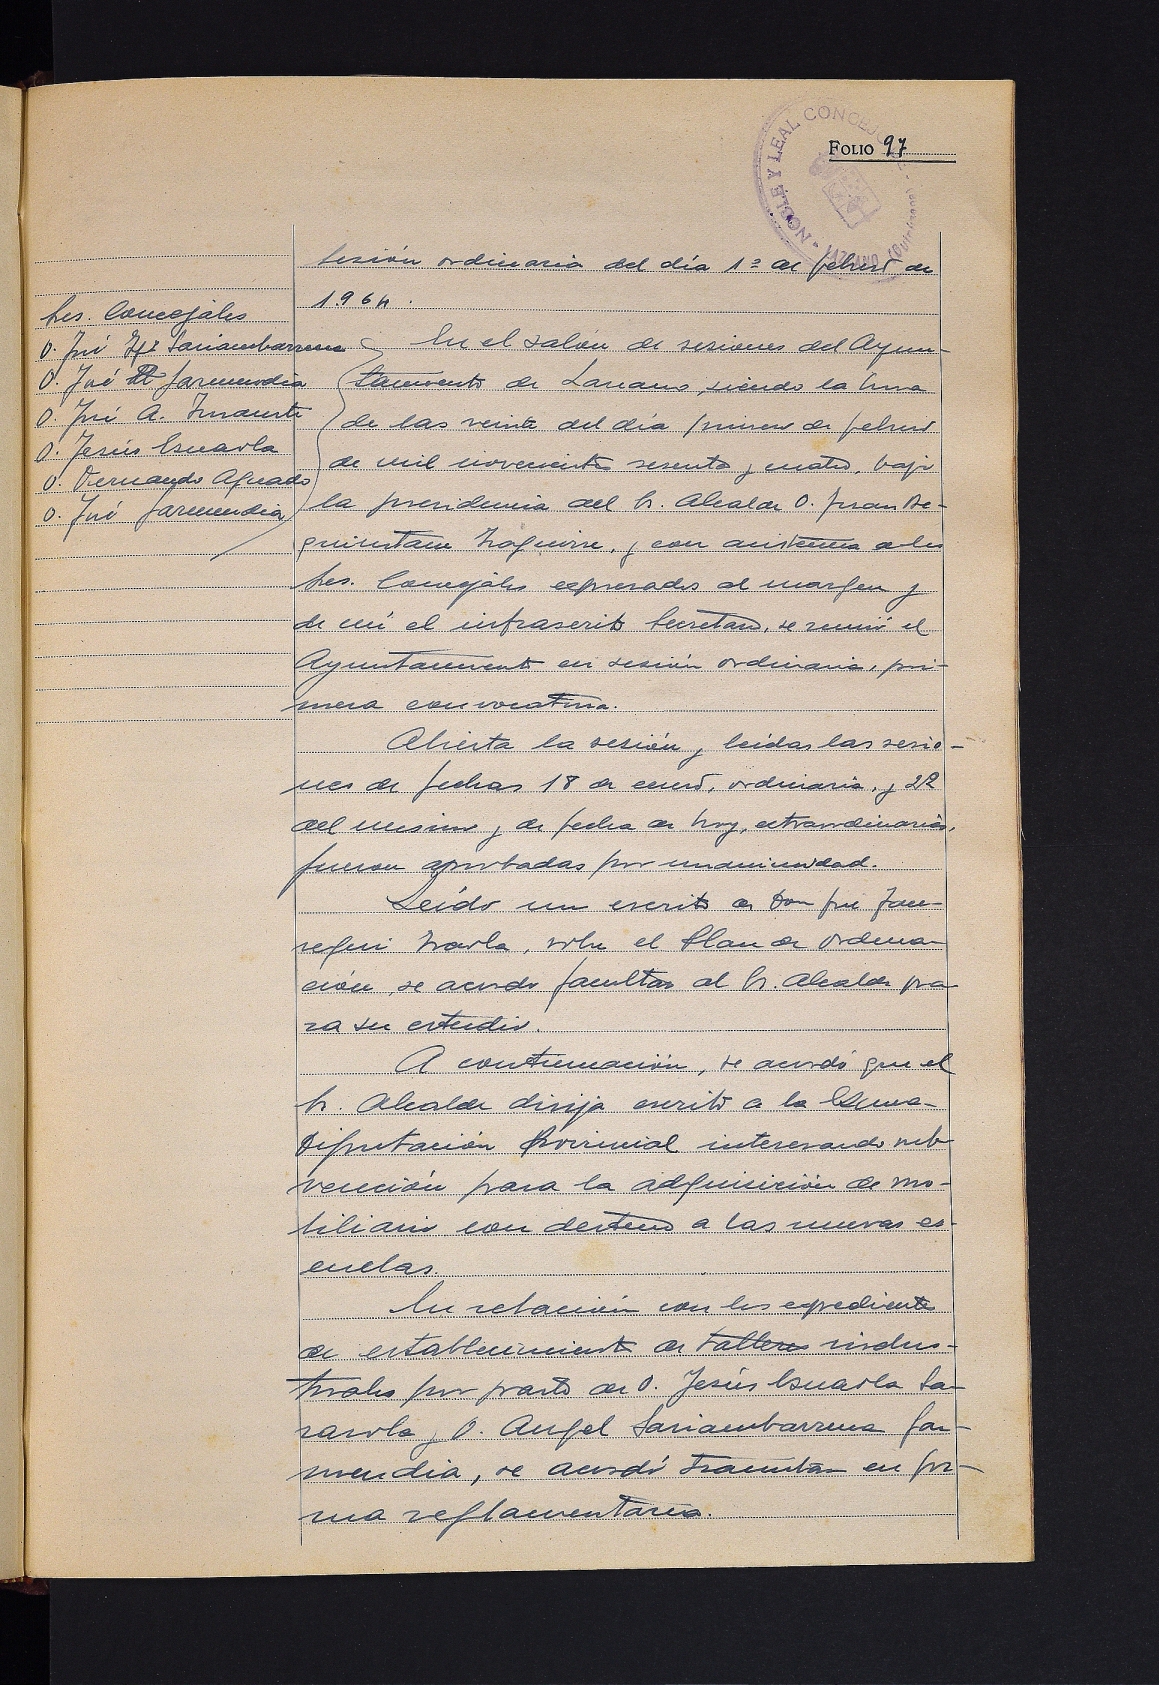 FOLIO 97
NOBLE Y LEAL CONCEJO
LAZCANO (GUIPUZCOA)
Sesión ordinaria del día 1º de febrero de
1.964.
Sres. Concejales
D. José Sarriambarrena
D. José M. Garmendia
D. José A. Insausti
D. Jesús Esnaola
D. Fernando Aguado
D. José Garmendia
En el salón de sesiones del Ayun-
tamiento de Lazcano, siendo la hora
de las veinte del día primero de febrero
de mil novecientos sesenta y cuatro, bajo
la presidencia del Sr. Alcalde D. Juan Be-
guiristain Iraguirre, y con asistencia de los
Sres. Concejales expresados al margen y
de mí el infrascrito Secretario, se reunió el
Ayuntamiento en sesión ordinaria, pri-
mera convocatoria.
Abierta la sesión y leídas las sesio-
nes de fechas 18 de enero, ordinaria, y 22
del mismo y de fecha de hoy, extraordinarias,
fueron aprobadas por unanimidad.
Leído un escrito de Don José Jau-
regui Izaola, sobre el Plan de Ordena-
ción, se acordó facultar al Sr. Alcalde pa-
ra su estudio.
A continuación, se acordó que el
Sr. Alcalde dirija escrito a la Excma.
Diputación Provincial interesando sub-
vención para la adquisición de mo-
biliario con destino a las nuevas es-
cuelas.
En relación con los expedientes
de establecimiento de talleres indus-
triales por parte de D. Jesús Esnaola Sa-
rasola y D. Angel Sarriambarrena Gar-
mendia, se acordó tramitar en for-
ma reglamentaria.